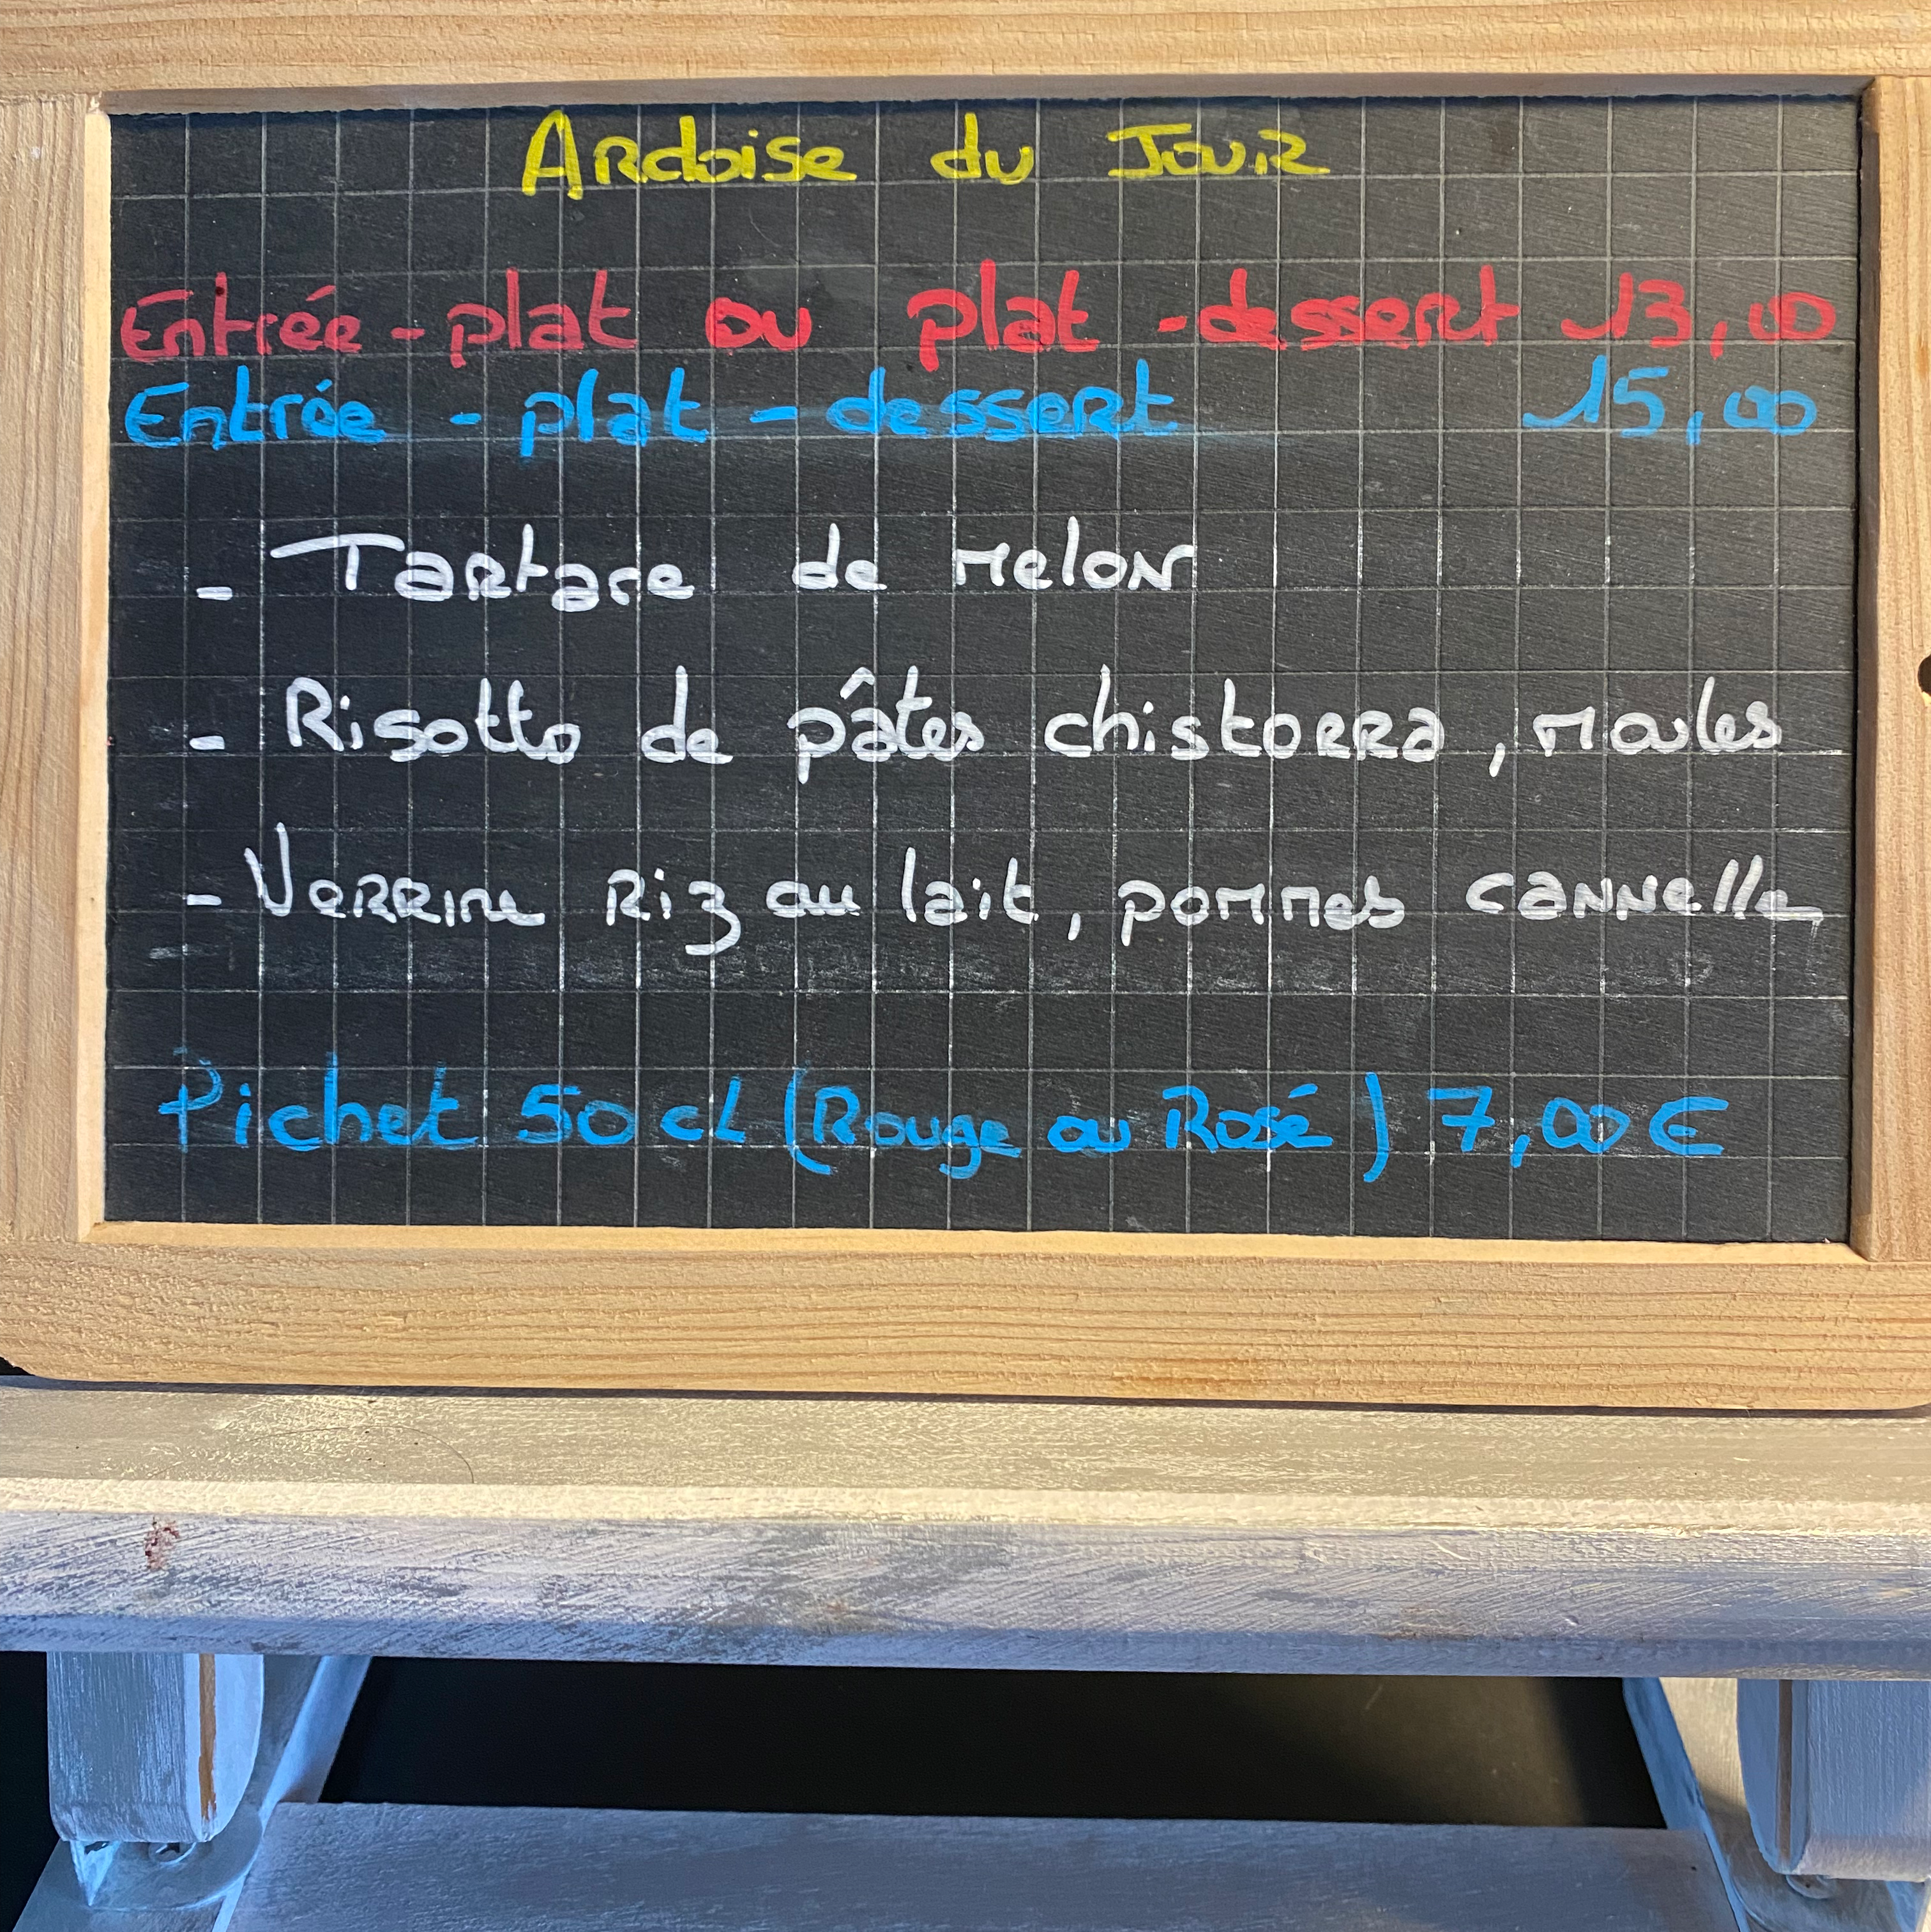 Ardoise du Jour
Entrée - plat ou plat - dessert 13,00
Entrée - plat - dessert 15,00
- Tartare de melon
- Risotto de pâtes chistorra, moules
- Verrine Riz au lait, pommes cannelle
Pichet 50 cL (Rouge ou Rosé) 7,00 €